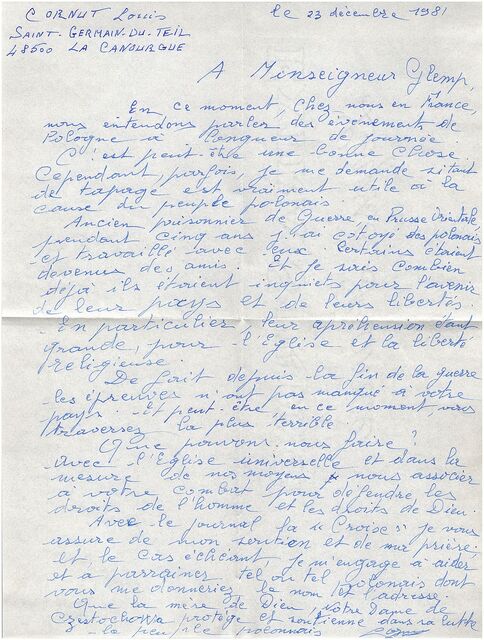 CORNUT Louis
le 23 décembre 1981
SAINT-GERMAIN-DU-TEIL
48500 LA CANOURGUE
A Minseigneur Glemp,
En ce moment, chez nous en France,
nous entendons parler des événements de
Pologne à longueur de journée.
C'est peut-être une bonne chose.
Cependant, parfois, je me demande si tant
de tapage est vraiment utile à la
cause du peuple polonais.
Ancien prisonnier de Guerre, en Prusse Orientale
pendant cinq ans j'ai cotoyé des polonais
et travaillé avec eux. Certains étaient
devenus des amis. Et je sais combien
déjà ils étaient inquiets pour l'avenir
de leur pays et de leurs libertés.
En particulier, leur apréhension était
grande, pour l'Eglise et la liberté
religieuse.
De fait depuis la fin de la guerre
les épreuves n'ont pas manqué à votre
pays. Et peut-être, en ce moment vous
traversez la plus terrible
Que pouvons-nous faire ?
Avec l'Eglise universelle et dans la
mesure de nos moyens nous associer
à votre combat pour défendre les
droits de l'homme et les droits de Dieu.
Avec le journal La "Croix" je vous
assure de mon soutien et de ma prière.
et, le cas échéant, je m'engage à aider
et à parrainer tel ou tel polonais dont
vous me donneriez le nom et l'adresse.
Que la mère de Dieu, Notre Dame de
Czestochowa protège et soutienne dans sa lutte
le peuple polonnais